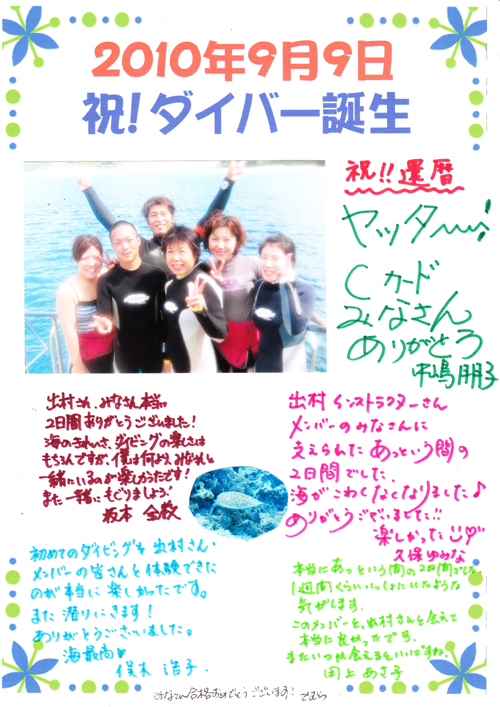 2010年9月9日
祝!ダイバー誕生
祝!!還暦
ヤッター〜!
Cカード
みなさん
ありがとう
中嶋朋子
出村さん、みなさん本当に
2日間ありがとうございました!
海のきれいさ、ダイビングの楽しさは
もちろんですが、僕は何より、みなさんと
一緒にいるのが楽しかったです!
また一緒にもぐりましょう!
坂本
出村インストラクターさん
メンバーのみなさんに
支えられた あっという間の
2日間でした。
海がこわくなくなりました♪
ありがとうございました!!
楽しかった
久保ゆみな
初めてのダイビングを 出村さん・
メンバーの皆さんと体験できた
のが本当に楽しかったです。
また潜りにきます!
ありがとうございました。
海最高
俣木 浩子.
本当にあっという間の2日間でした。
1週間くらいいっしょにいたような
気がします。
このメンバーと、出村さんと会えて
本当に良かったです。
またいつか会えるといいですね。
田上 あさ子
みなさん合格おめでとうございます! でむら